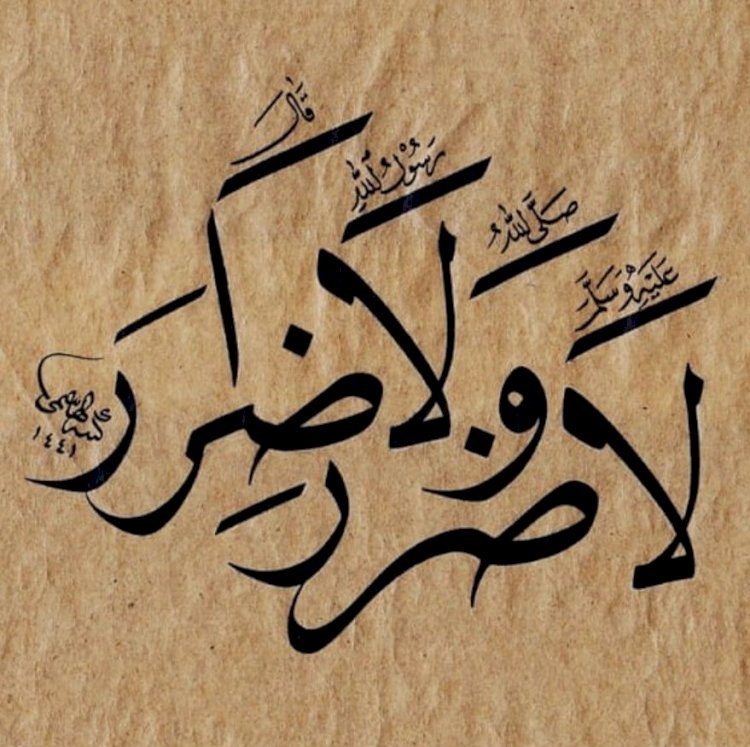 قَالَ
رَسُوْلُ اللهِ
صَلَّى اللهُ
عَلَيْهِ وَسَلَّمَ
لَا ضَرَرَ وَلَا ضِرَارَ
١٤٤١